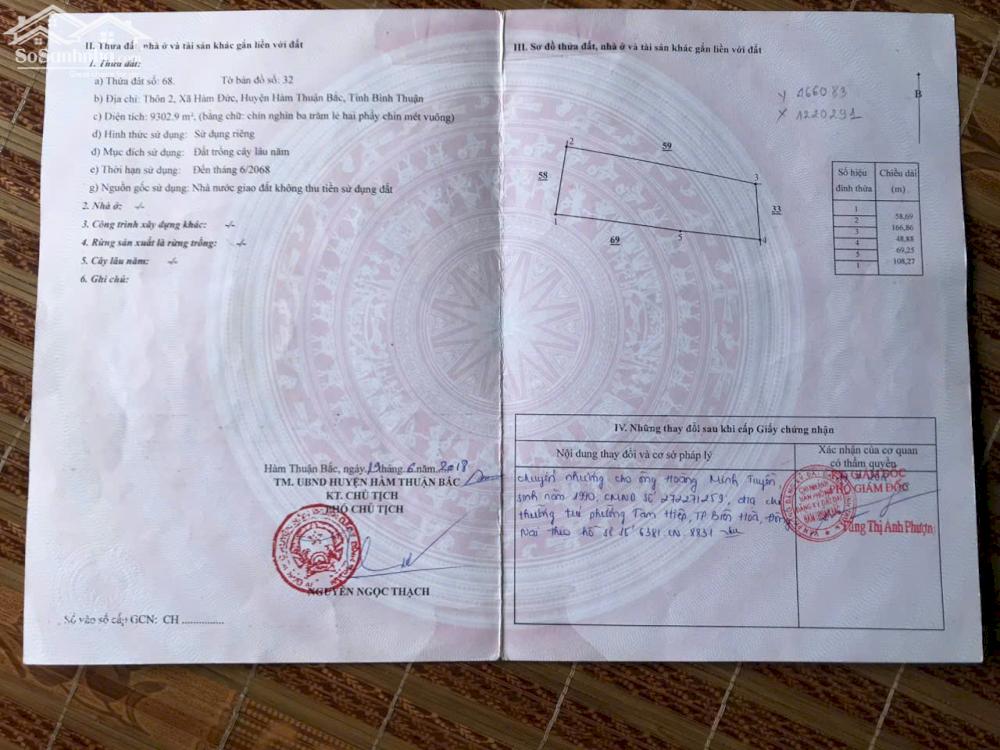 II. Thửa đất, nhà ở và tài sản khác gắn liền với đất
1. Thửa đất:
a) Thửa đất số: 68. Tờ bản đồ số: 32
b) Địa chỉ: Thôn 2, Xã Hàm Đức, Huyện Hàm Thuận Bắc, Tỉnh Bình Thuận
c) Diện tích: 9302.9 m², (bằng chữ: chín nghìn ba trăm lẻ hai phẩy chín mét vuông)
d) Hình thức sử dụng: Sử dụng riêng
đ) Mục đích sử dụng: Đất trồng cây lâu năm
e) Thời hạn sử dụng: Đến tháng 6/2068
g) Nguồn gốc sử dụng: Nhà nước giao đất không thu tiền sử dụng đất
2. Nhà ở: -/-
3. Công trình xây dựng khác: -/-
4. Rừng sản xuất là rừng trồng: -/-
5. Cây lâu năm: -/-
6. Ghi chú:
Hàm Thuận Bắc, ngày 19 tháng 6 năm 2018
TM. UBND HUYỆN HÀM THUẬN BẮC
KT. CHỦ TỊCH
PHÓ CHỦ TỊCH
NGUYỄN NGỌC THẠCH
Số vào sổ cấp GCN: CH ..............
III. Sơ đồ thửa đất, nhà ở và tài sản khác gắn liền với đất
Y 466083
X 1220291
B
2
59
58
3
33
1
69
5
4
Số hiệu đỉnh thửa
Chiều dài (m)
1
58,69
2
166,86
3
48,88
4
69,25
5
108,27
1
IV. Những thay đổi sau khi cấp Giấy chứng nhận
Nội dung thay đổi và cơ sở pháp lý
Xác nhận của cơ quan
có thẩm quyền
Chuyển nhượng cho ông Hoàng Minh Tuyển,
sinh năm 1990, CMND số 272271259, địa chỉ
thường trú phường Tam Hiệp, TP Biên Hoà, Đồng
Nai theo hồ sơ số 6381.CN.8831
KT. GIÁM ĐỐC
PHÓ GIÁM ĐỐC
Tùng Thị Anh Phượng